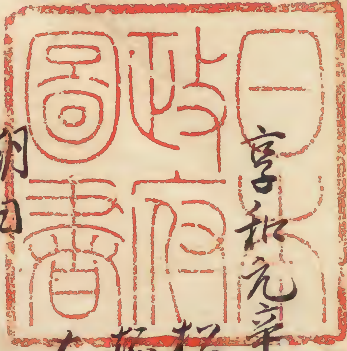 日本
政府
圖書
享和元辛